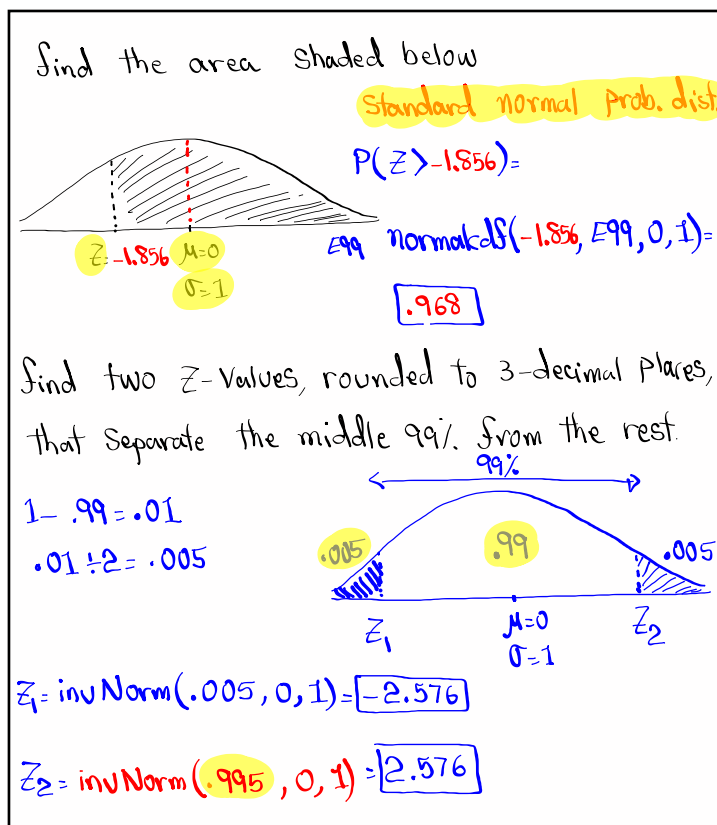 find the area shaded below
Standard normal Prob. dist.
P(Z>-1.856)=
Z=-1.856 μ=0
σ=1
E99 normalcdf(-1.856, E99, 0, 1)=
.968
find two Z-Values, rounded to 3-decimal places,
that Separate the middle 99% from the rest.
99%
1- .99=.01
.01÷2= .005
.005 .99 .005
Z₁ μ=0 Z₂
σ=1
Z₁=invNorm(.005, 0, 1)=-2.576
Z₂=invNorm(.995, 0, 1)=2.576